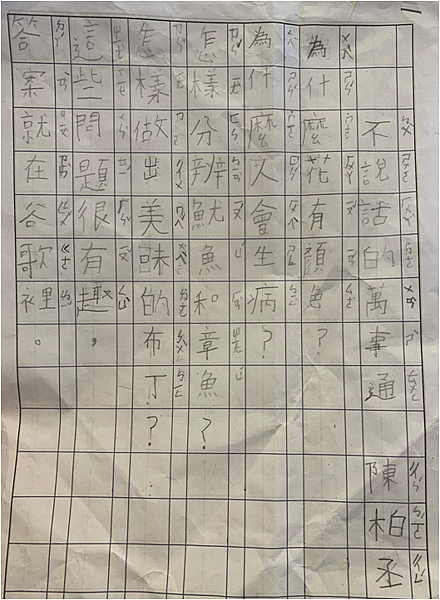 一
不說話的萬事通 陳柏丞
為什麼花有顏色?
為什麼人會生病?
怎樣分辨魷魚和章魚?
怎樣做出美味的布丁?
這些問題很有趣，
答案就在谷歌裡。